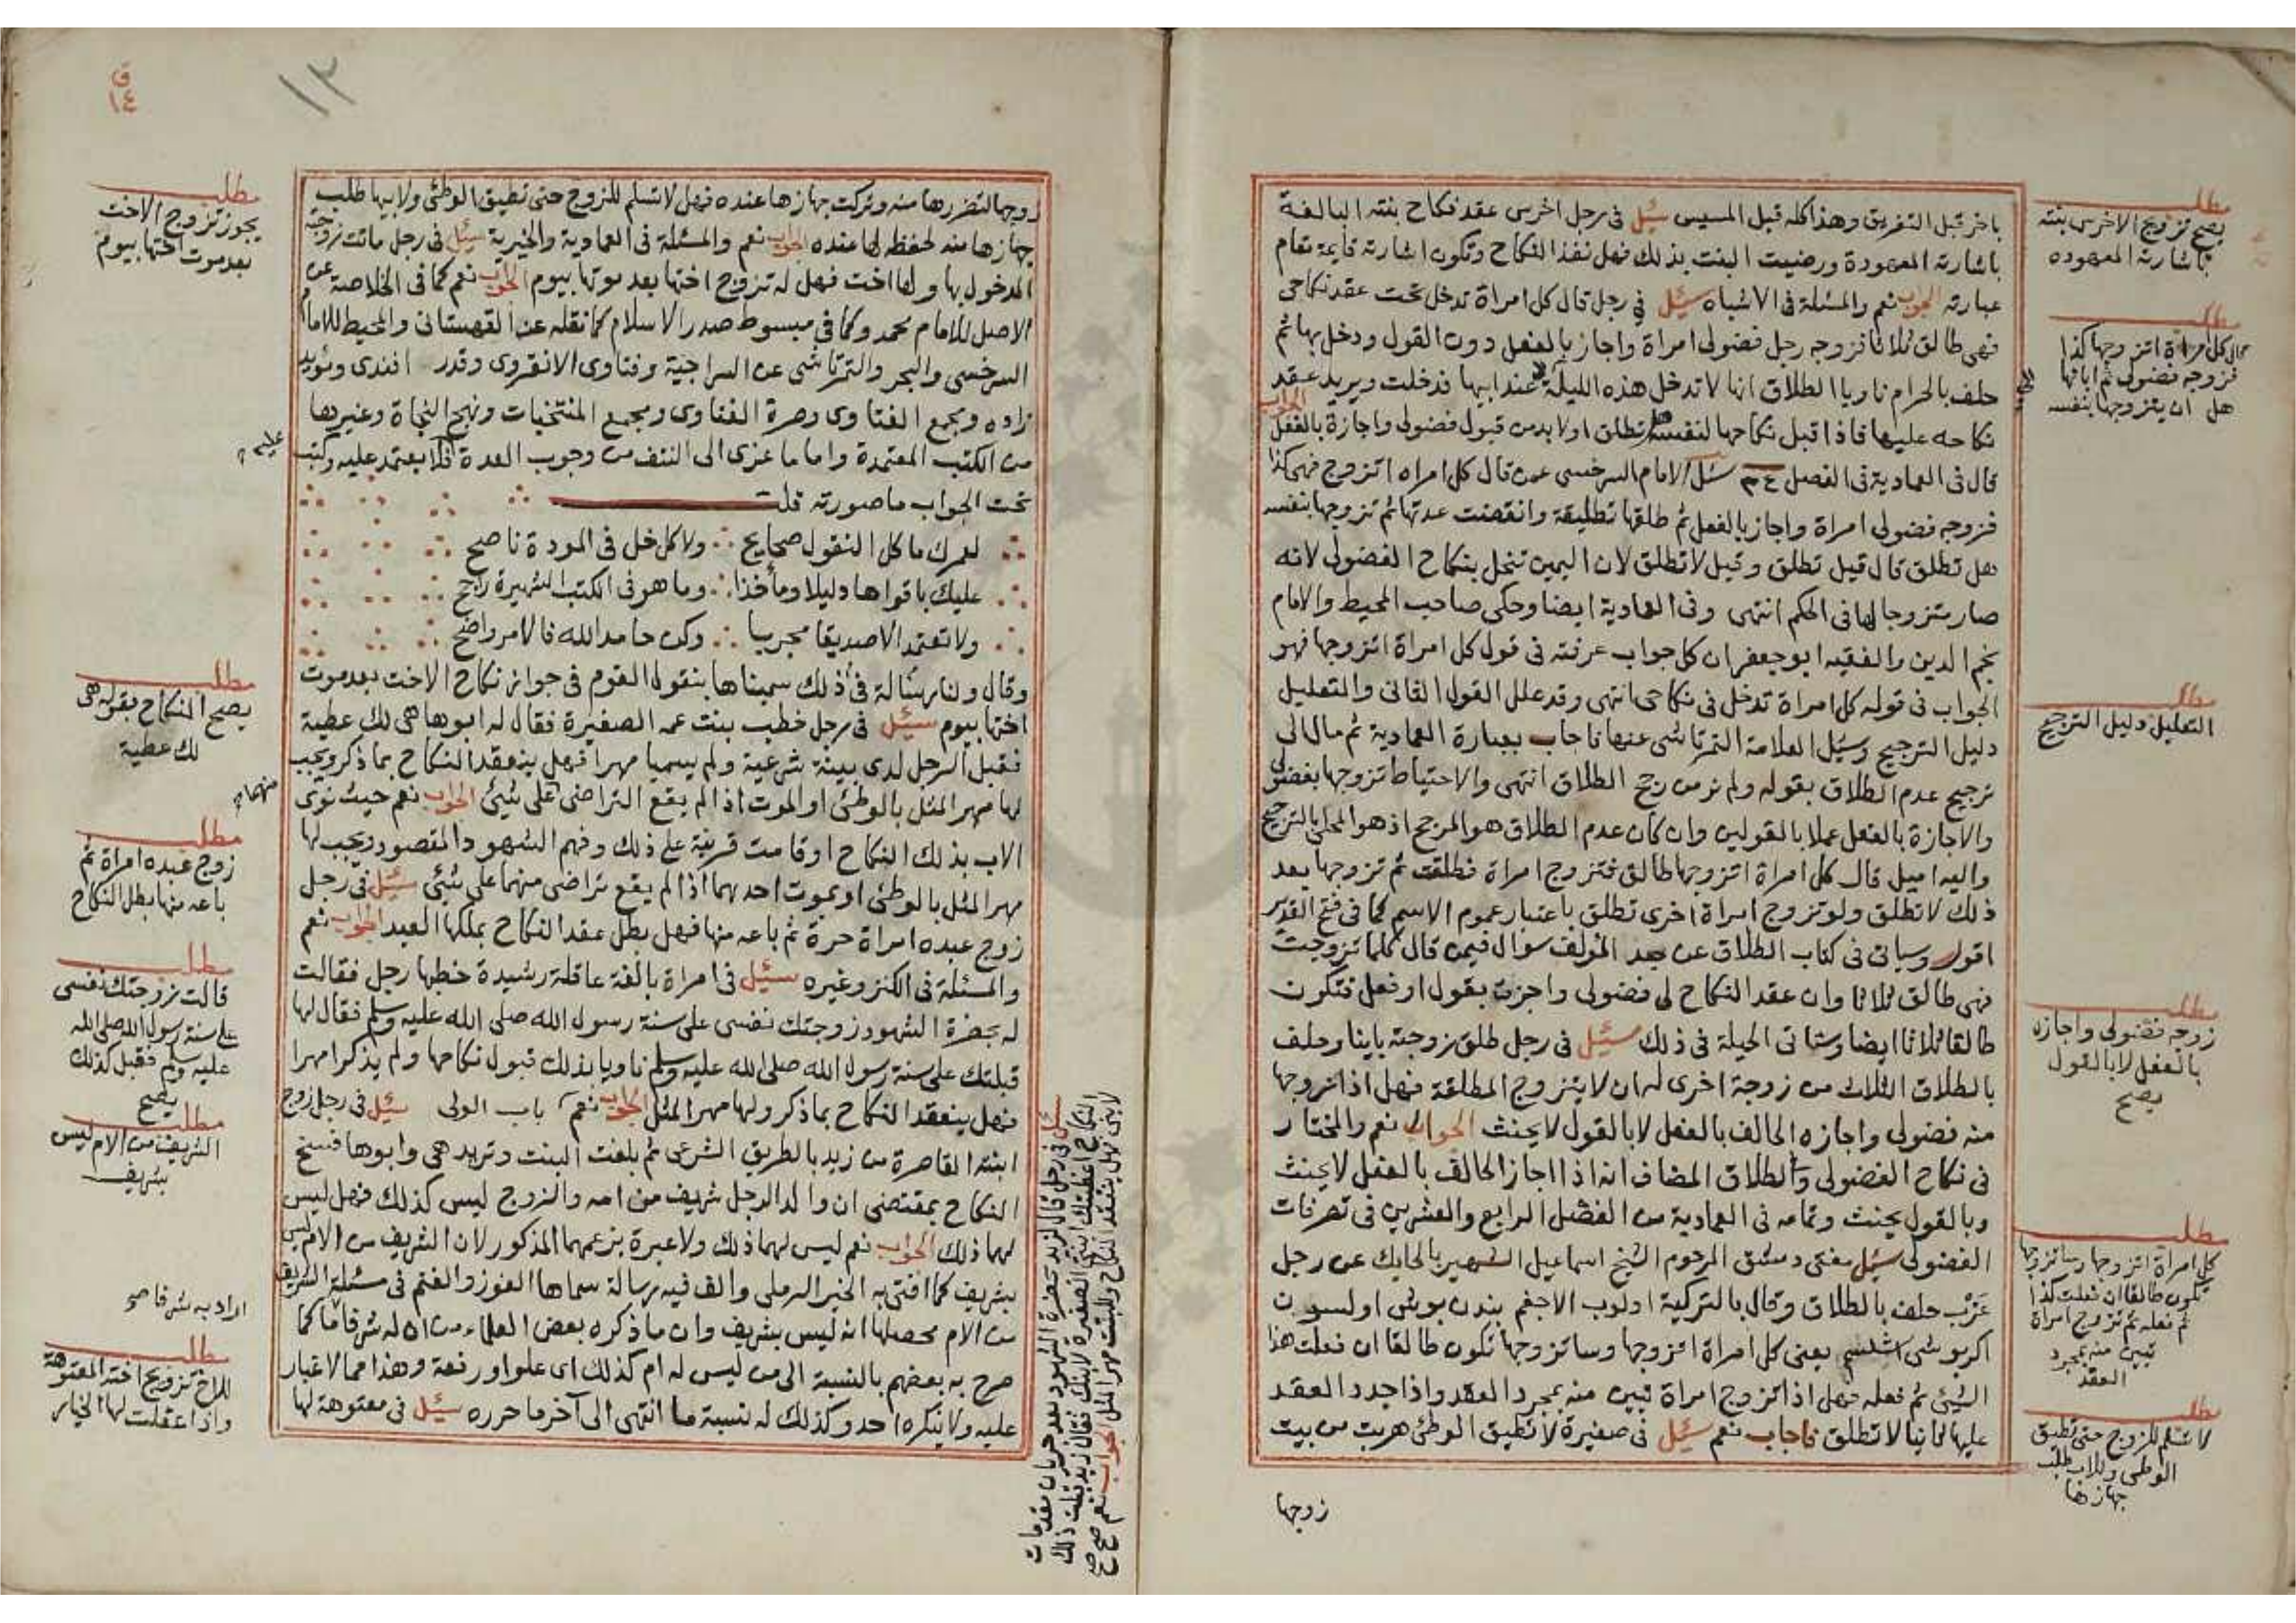 باخر قبل التفريق وهذا كله قبل المسيس سئل في رجل اخرس عقد نكاح بنته البالغة
باشارته المعهودة ورضيت البنت بذلك فهل نفذ النكاح وتكون اشارته قايمة مقام
عبارته الجواب نعم والمسئلة في الاشباه سئل في رجل قال كل امراة تدخل تحت عقد نكاحي
فهي طالق ثلاثا فزوجه رجل فضولي امراة واجاز بالفعل دون القول ودخل بها ثم
حلف بالحرام ناويا الطلاق انها لا تدخل هذه الليلة عند ابيها فدخلت ويريد عقد
نكاحه عليها فاذا قبل نكاحها لنفسه هل تطلق او لا بد من قبول فضولي واجازة بالفعل الجواب
قال في العمادية في الفصل سئل الامام السرخسي عمن قال كل امراه اتزوج فهي كذا
فزوجه فضولي امراة واجاز بالفعل ثم طلقها تطليقة وانقضت عدتها ثم تزوجها بنفسه
هل تطلق قال قيل تطلق وقيل لا تطلق لان اليمين تنحل بنكاح الفضولي لانه
صار متزوجا لها في الحكم انتهى وفي العمادية ايضا وحكى صاحب المحيط والامام
نجم الدين والفقيه ابو جعفر ان كل جواب عرفته في قول كل امراة اتزوجها فهو
الجواب في قوله كل امراة تدخل في نكاحي انتهى وقد علل القول الثاني والتعليل
دليل الترجيح وسئل العلامة التمرتاشي عنها فاجاب بعبارة العمادية ثم مال الى
ترجيح عدم الطلاق بقوله ولم نر من رجح الطلاق انتهى والاحتياط تزوجها بفضولي
والاجازة بالفعل عملا بالقولين وان كان عدم الطلاق هو المرجح اذ هو المحلى بالترجيح
واليه اميل قال كل امراة اتزوجها طالق فتزوج امراة فطلقت ثم تزوجها بعد
ذلك لا تطلق ولو تزوج امراة اخرى تطلق باعتبار عموم الاسم كما في فتح القدير
اقول وسياتي في كتاب الطلاق عن جد المؤلف سؤال فيمن قال كلما تزوجت
فهي طالق ثلاثا وان عقد النكاح لي فضولي واجزت بقول او فعل فتكون
طالقا ثلاثا ايضا وستاتي الحيلة في ذلك سئل في رجل طلق زوجته باينا وحلف
بالطلاق الثلاث من زوجة اخرى له ان لا يتزوج المطلقة فهل اذا تزوجها
منه فضولي واجازه الحالف بالفعل لا بالقول لا يحنث الجواب نعم والمختار
في نكاح الفضولي والطلاق المضاف انه اذا اجاز الحالف بالفعل لا يحنث
وبالقول يحنث وتمامه في العمادية من الفصل الرابع والعشرين في تصرفات
الفضولي سئل مفتي دمشق المرحوم الشيخ اسماعيل الشهير بالحايك عن رجل
عزب حلف بالطلاق وقال بالتركية اولوب الاجغم بندن بوش اولسون
اكر بو شى يعني كل امراة اتزوجها وساتزوجها تكون طالقا ان فعلت هذا
الشئ ثم فعله فهل اذا تزوج امراة تبين منه بمجرد العقد واذا جدد العقد
عليها ثانيا لا تطلق فاجاب نعم سئل في صغيرة لا تطيق الوطئ هربت من بيت
زوجها
مطلب
يصح تزويج الاخرس بنته
باشارته المعهوده
مطلب
قال كل امراة اتزوجها كذا
فزوجه فضولي ثم ابانها
هل ان يتزوجها بنفسه
مطلب
التعليل دليل الترجيح
مطلب
زوجه فضولي واجازه
بالفعل لا بالقول
يصح
مطلب
كل امراة اتزوجها وساتزوجها
تكون طالقا ان فعلت كذا
ثم فعله ثم تزوج امراة
تبين منه بمجرد
العقد
مطلب
لا تسلم للزوج حتى تطيق
الوطى وللاب طلب
جهازها
ق
١٤
١٣
زوجها لتضررها منه وتركت جهازها عنده فهل لا تسلم للزوج حتى تطيق الوطئ ولابيها طلب
جهازها منه لحفظه لها عنده الجواب نعم والمسئلة في العمادية والخيرية سئل في رجل ماتت زوجته
المدخول بها ولها اخت فهل له تزوج اختها بعد موتها بيوم الجواب نعم كما في الخلاصة عن
الاصل للامام محمد وكما في مبسوط صدر الاسلام كما نقله عنه القهستاني والمحيط للامام
السرخسي والبحر والتمرتاشي عن السراجية وفتاوى الانقروى وقدرى افندى ومؤيد
زاده ومجمع الفتاوى وصرة الفتاوى ومجمع المنتخبات ونهج النجاة وغيرها
من الكتب المعتمدة واما ما عزى الى النتف من وجوب العدة فلا يعتمد عليه وكتب
تحت الجواب ما صورته قلت
لعمرك ما كل النقول صحايح ولا كل خل في المودة ناصح
عليك باقواها دليلا ومأخذا وما هو في الكتب الشهيرة راجح
ولا تعتمد الا صديقا مجربا وكن حامد الله فالامر واضح
وقال ولنا رسالة في ذلك سميناها بنقول القوم في جواز نكاح الاخت بعد موت
اختها بيوم سئل في رجل خطب بنت عمه الصغيرة فقال له ابوها هي لك عطية
فقبل الرجل لدى بينة شرعية ولم يسميا مهرا فهل ينعقد النكاح بما ذكر ويجب
لها مهر المثل بالوطئ او الموت اذا لم يقع التراضي على شئ الجواب نعم حيث نوى
الاب بذلك النكاح او قامت قرينة على ذلك وفهم الشهود المقصود ويجب لها
مهر المثل بالوطئ او بموت احدهما اذا لم يقع تراضى منهما على شئ سئل في رجل
زوج عبده امراة حرة ثم باعه منها فهل بطل عقد النكاح بملكها العبد الجواب نعم
والمسئلة في الكنز وغيره سئل في امراة بالغة عاقلة رشيدة خطبها رجل فقالت
له بحضرة الشهود زوجتك نفسي على سنة رسول الله صلى الله عليه وسلم فقال لها
قبلتك على سنة رسول الله صلى الله عليه وسلم ناويا بذلك قبول نكاحها ولم يذكرا مهرا
فهل ينعقد النكاح بما ذكر ولها مهر المثل الجواب نعم باب الولى سئل في رجل زوج
ابنته القاصرة من زيد بالطريق الشرعي ثم بلغت البنت وتريد هي وابوها فسخ
النكاح بمقتضى ان والد الرجل شريف من امه والزوج ليس كذلك فهل ليس
لهما ذلك الجواب نعم ليس لهما ذلك ولا عبرة بزعمهما المذكور لان الشريف من الام ليس
بشريف كما افتى به الخير الرملي والف فيه رسالة سماها الفوز والغنم في مسئلة الشريف
من الام محصلها انه ليس بشريف وان ما ذكره بعض العلماء من ان له شرفا ما كما
صرح به بعضهم بالنسبة الى من ليس له ام كذلك اى علوا ورفعة وهذا مما لا غبار
عليه ولا ينكره احد وكذلك له نسبة ما انتهى الى آخر ما حرره سئل في معتوهة لها
مطلب
يجوز تزوج الاخت
بعد موت اختها بيوم
مطلب
يصح النكاح بقوله هي
لك عطية
مطلب
زوج عبده امراة ثم
باعه منها بطل النكاح
مطلب
قالت زوجتك نفسي
على سنة رسول الله صلى الله
عليه وسلم فقبل كذلك
يصح
مطلب
الشريف من الام ليس
بشريف
اراد به شرفا صح
مطلب
للاخ تزويج اخته المعتوهة
واذا عقلت لها الخيار
سئل في رجل قال لزيد بحضرة الشهود بعد جريان مقدمات
النكاح اعطيتك ابنتي الصغيرة لابنك فقال زيد قبلت ذلك
لابني فهل ينعقد النكاح وللبنت مهر المثل الجواب نعم صح